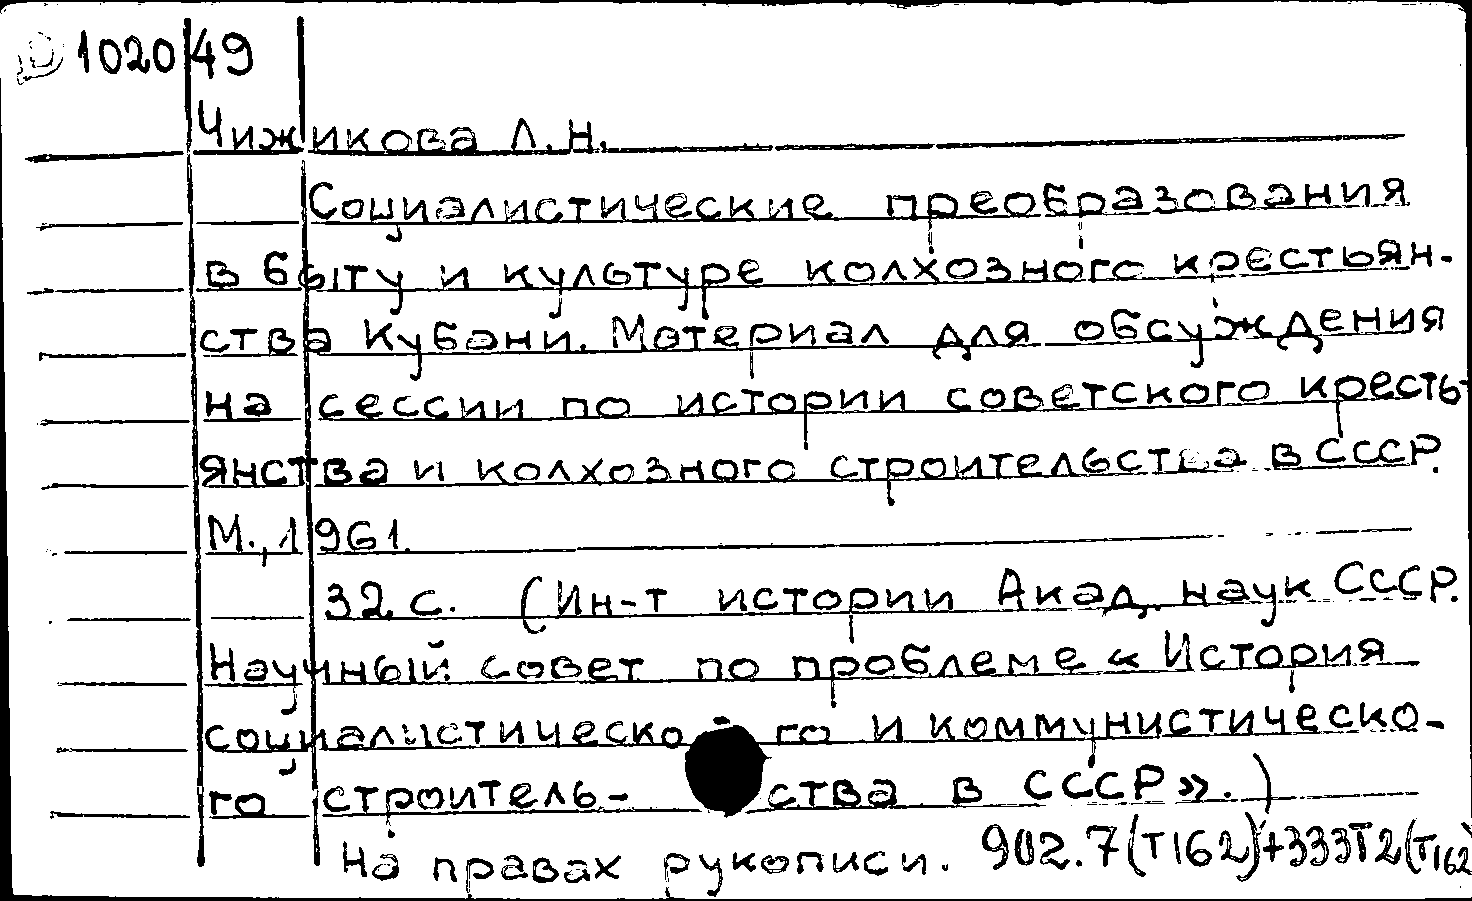 1020 49
Чижикова Л.Н.
Социалистические преобразования
в быту и культуре колхозного крестьян-
ства Кубани. Материал для обсуждения
на сессии по истории советского кресть-
янства и колхозного строительства в СССР.
М., 1961.
32 с. (Ин-т истории Акад. наук СССР.
Научный совет по проблеме «История
социалистического и коммунистическо-
го строитель-ства в СССР».)
На правах рукописи. 902.7(Т162)+333Т2(Т162)